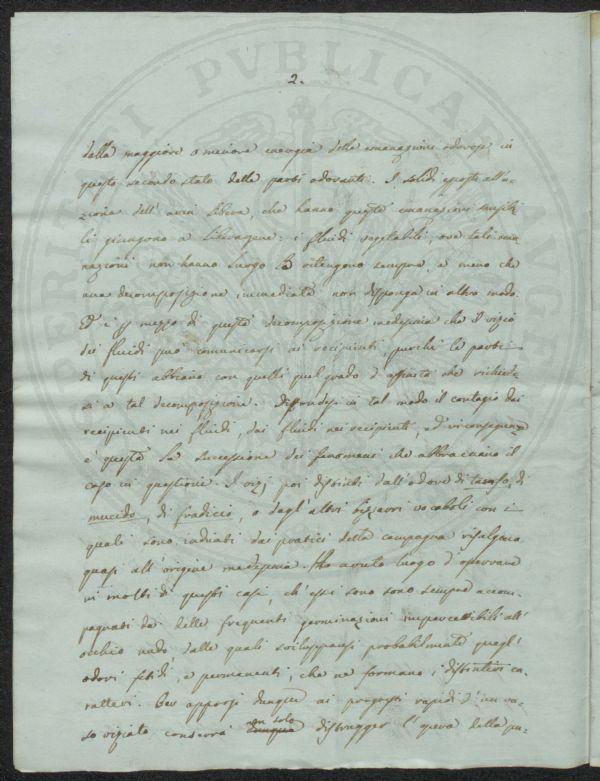 2.
dalla maggiore o minore energia delle emanazioni odorose in
questo secondo stato delle parti odoranti. I solidi esposti all'a-
zione dell' aria libera, che hanno queste emanazioni
li giungono a liberarsene: i fluidi vegetabili, ove tali ema-
nazioni non hanno luogo le ritengono sempre, a meno che
una decomposizione immediata non disponga in altro modo.
Ed è p mezzo di questa decomposizione medesima che il vizio
dei fluidi può comunicarsi ai recipienti, purché le parti
di questi abbiano con quelli quel grado d'affinità che richie-
si a tal decomposizione. Diffondesi in tal modo il contagio dai
recipienti nei fluidi, dai fluidi nei recipienti, ed in conseguenza
è questa la successione dei fenomeni che abbracciano il
caso in questione. I vizj poi distinti dall'odore di tanfo, di
mucido, di fradicio, o dagl' altri bizzarri vocaboli con i
quali sono indicati dai pratici della campagna risalgono
quasi all' origine medesima. Ho avuto luogo d'osservare
in molti di questi casi, ch'essi sono sono sempre accom-
pagnati da delle frequenti germinazioni impercettibili all'
occhio nudo dalle quali sviluppansi probabilmente quegl'
odori fetidi, e permanenti, che ne formano i distintivi ca-
ratteri. Per opporsi dunque ai progressi rapidi d'un va-
so viziato converrà non solo distrugger l'opera della pu-